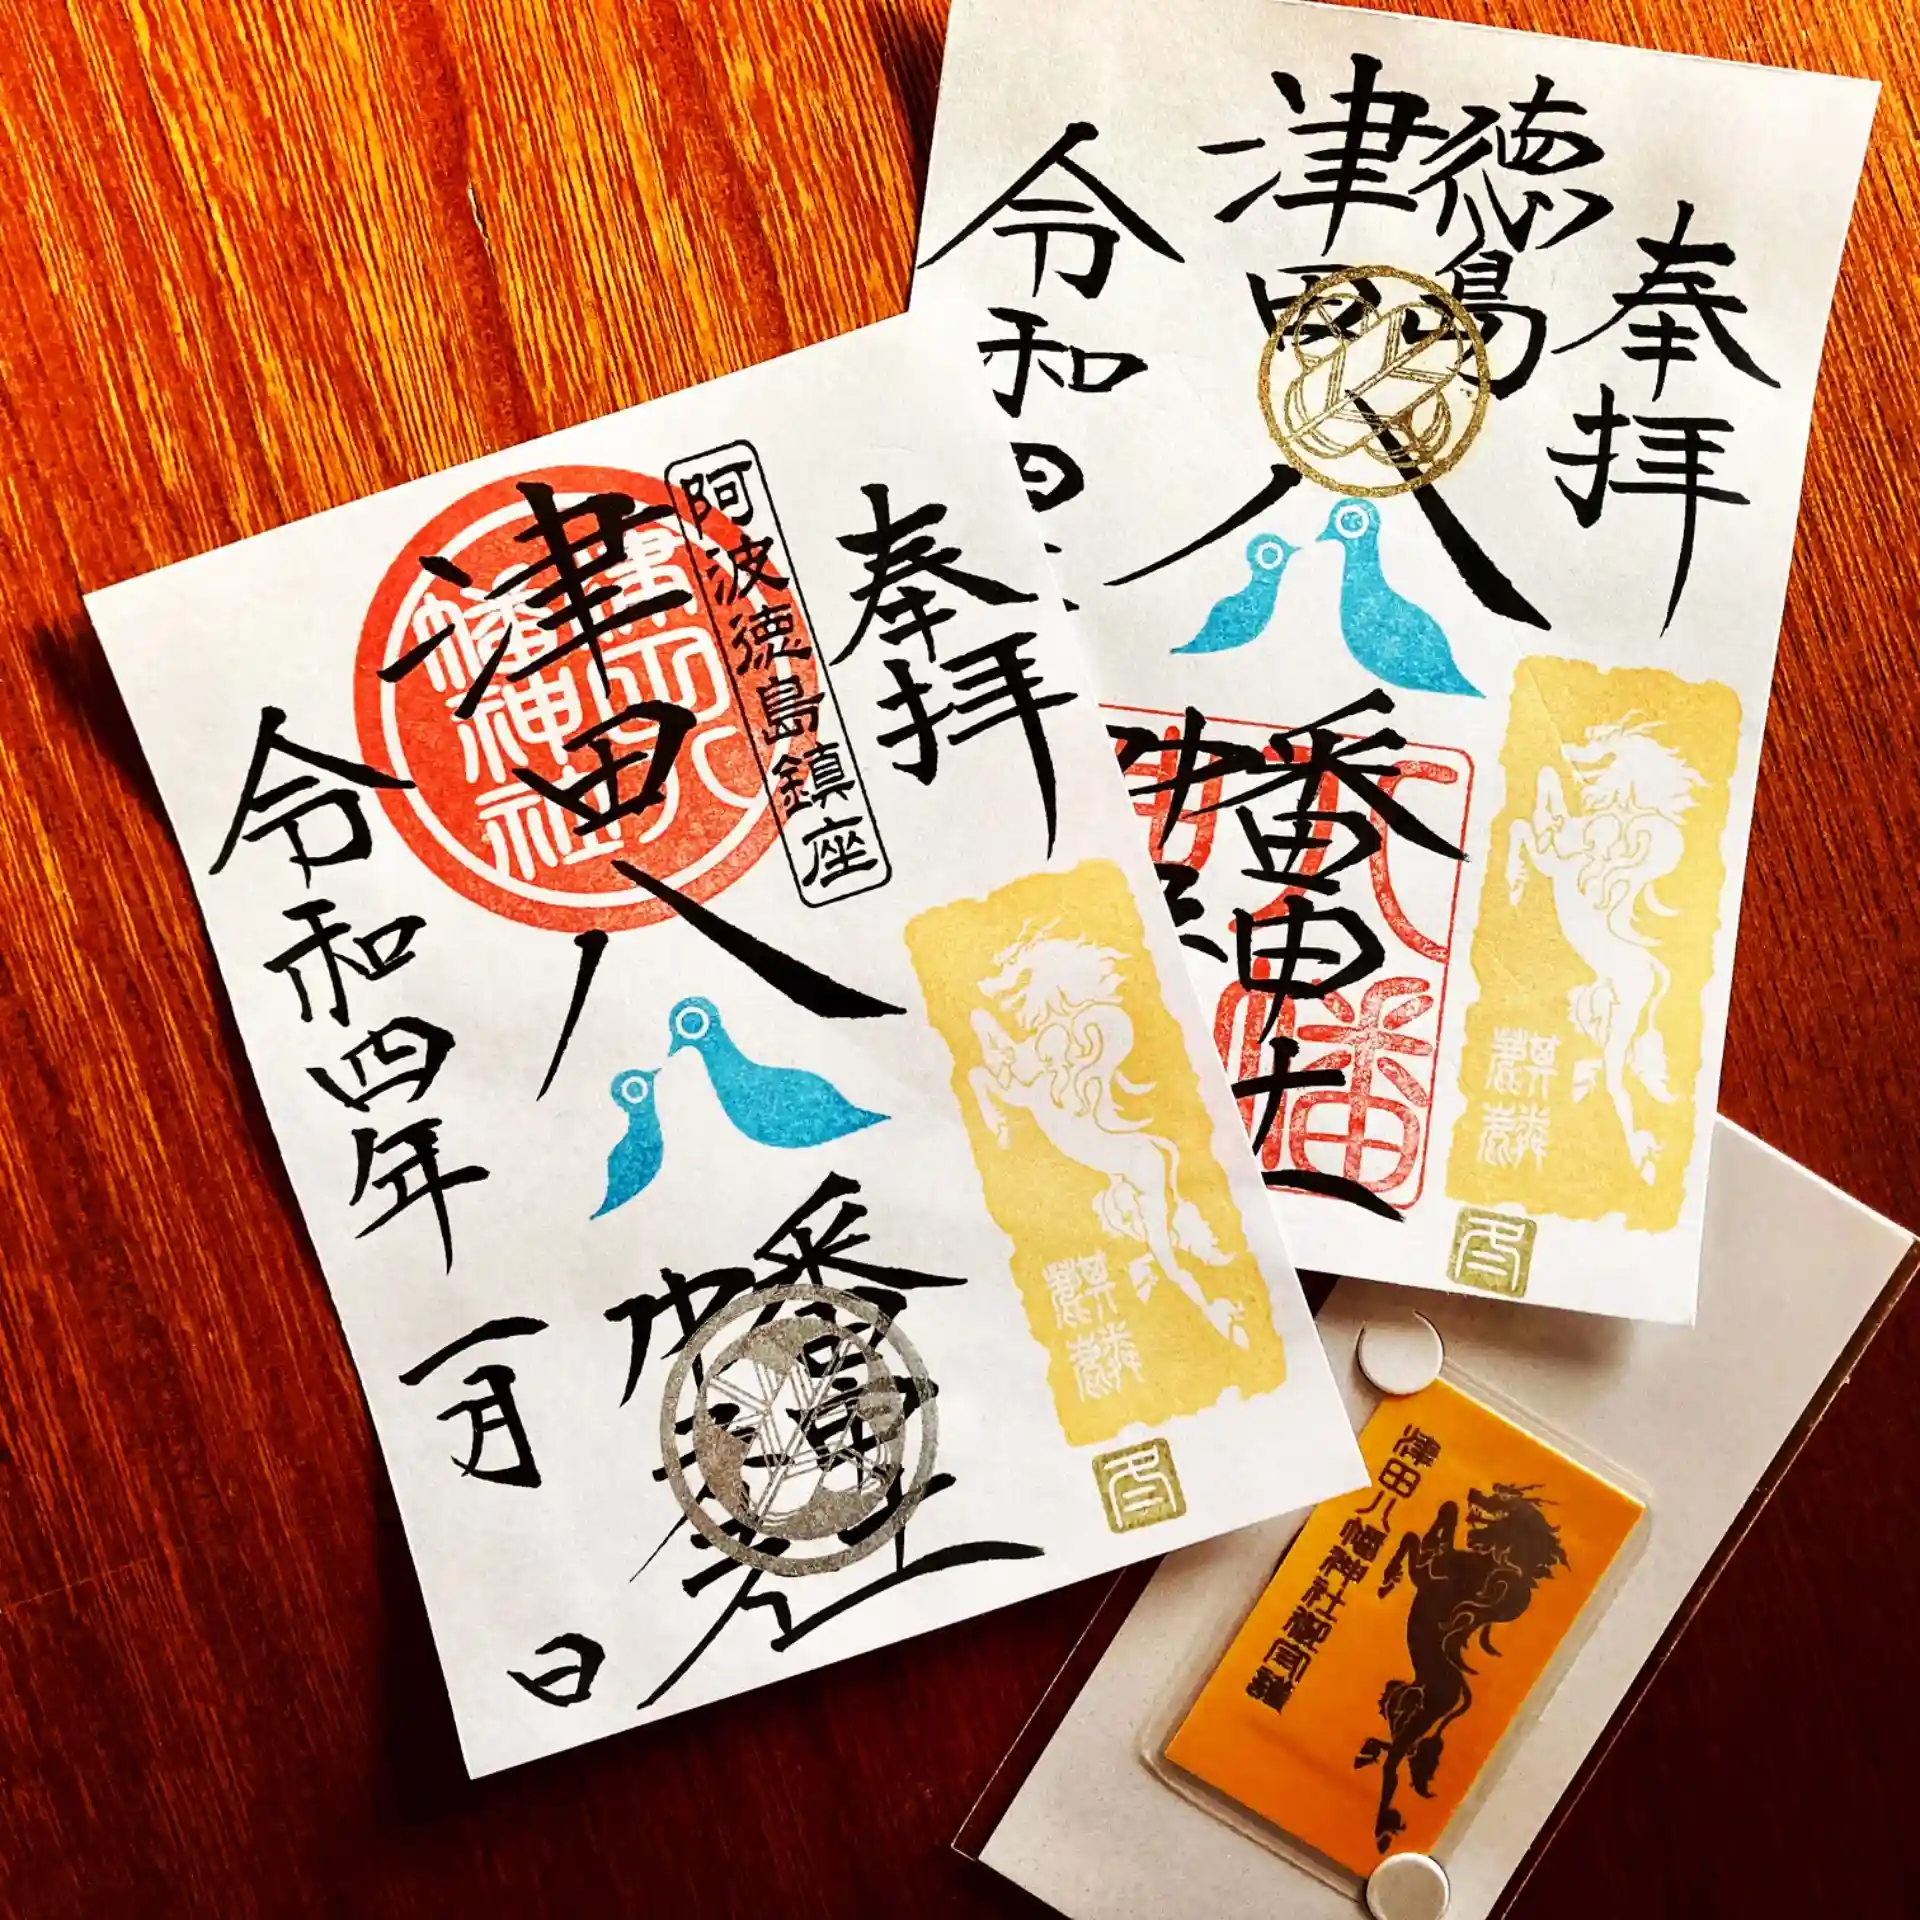 奉拝
徳島
津田八幡神社
令和
八幡
麒麟
奉拝
阿波徳島鎮座
津田八幡神社
津田八幡神社
令和四年
一月
日
麒麟
津田八幡神社御守護